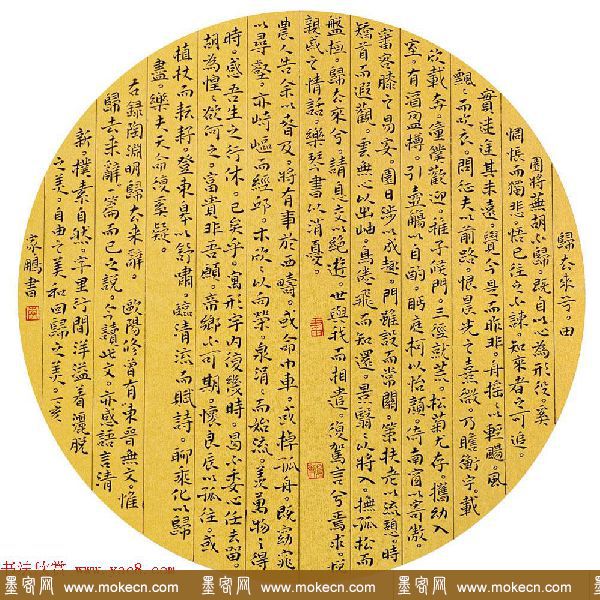 歸去來兮。田
園將蕪胡不歸。既自以心為形役。奚
惆悵而獨悲。悟已往之不諫。知來者之可追。
實迷途其未遠。覺今是而昨非。舟搖以輕颺。風
飄飄而吹衣。問征夫以前路。恨晨光之熹微。乃瞻衡宇。載
欣載奔。僮僕歡迎。稚子候門。三徑就荒。松菊尤存。攜幼入
室。有酒盈樽。引壺觴以自酌。眄庭柯以怡顏。倚南窗以寄傲。
審容膝之易安。園日涉以成趣。門雖設而常關。策扶老以流憩。時
矯首而遐觀。雲無心以出岫。鳥倦飛而知還。景翳翳以將入。撫孤松而
盤桓。歸去來兮。請息交以絕遊。世與我而相遺。復駕言兮焉求。悅
親戚之情話。樂琴書以消憂。
農人告余以春及。將有事於西疇。或命巾車。或棹孤舟。既窈窕
以尋壑。亦崎嶇而經邱。木欣欣以向榮。泉涓涓而始流。羨萬物之得
時。感吾生之行休。已矣乎。寓形宇內復幾時。曷不委心任去留。
胡為惶惶欲何之。富貴非吾願。帝鄉不可期。懷良辰以孤往。或
植杖而耘耔。登東皋以舒嘯。臨清流而賦詩。聊乘化以歸
盡。樂夫天命復奚疑。
右錄陶淵明歸去來辭。歐陽修曾有東晉無文惟
歸去來辭一篇而已之說。今讀此文。亦感語言清
新樸素自然。字里行間洋溢着灑脫
之美。自由之美和回歸之美。丁亥
家鵬書
墨客网 www.mokecn.com 墨客网 www.mokecn.com 墨客网 www.mokecn.com